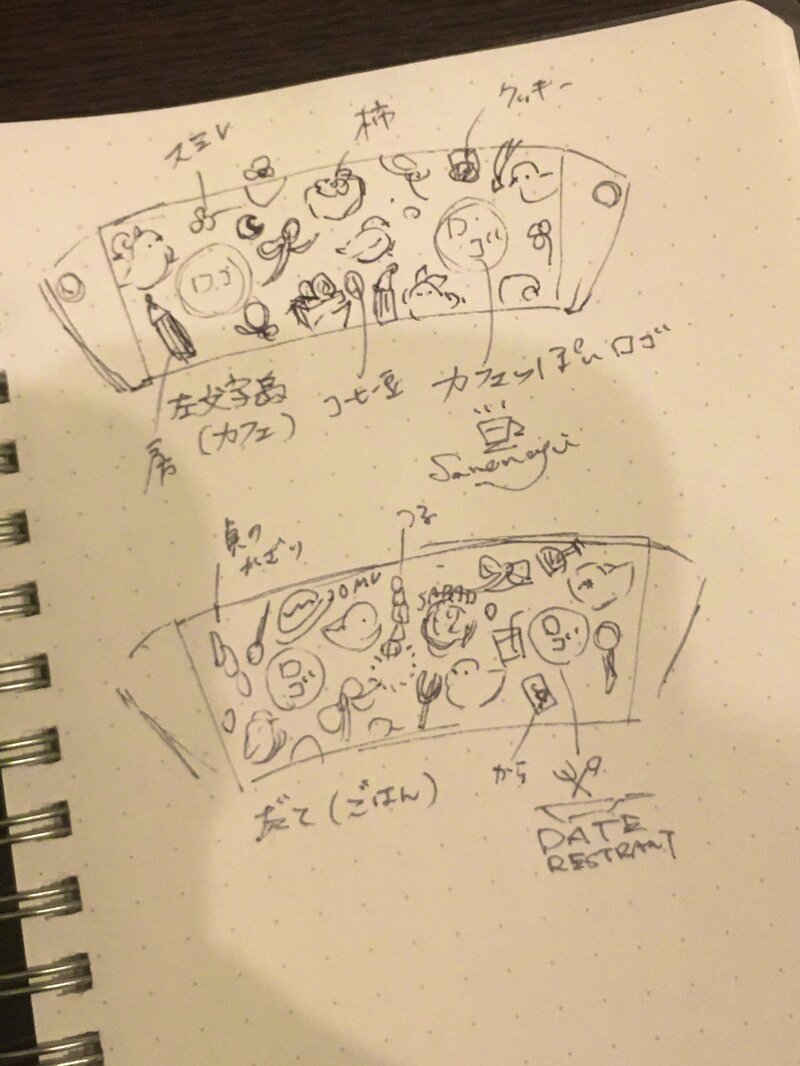 スミレ
柿
クッキー
ロゴ
ロゴ
左文字島
(カフェ)
コーヒー豆
カフェっぽいロゴ
房
つる
貞の
かざり
ロゴ
ロゴ
だて(ごはん)
から
DATE
RESTRANT